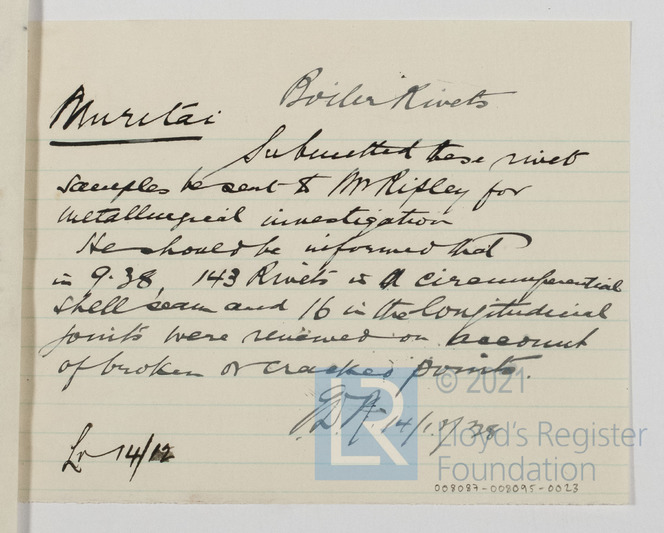 Boiler Rivets
Muritai
Submitted these rivet
samples be sent to Mr Ripley for
metallurgical investigation
He should be informed that
in 9.38, 143 Rivets in a circumferential
shell seam and 16 in the longitudinal
joints were renewed on account
of broken or cracked points.
14/12/38
14/12
LR
© 2021
Lloyd's Register
Foundation
008087-008095-0023